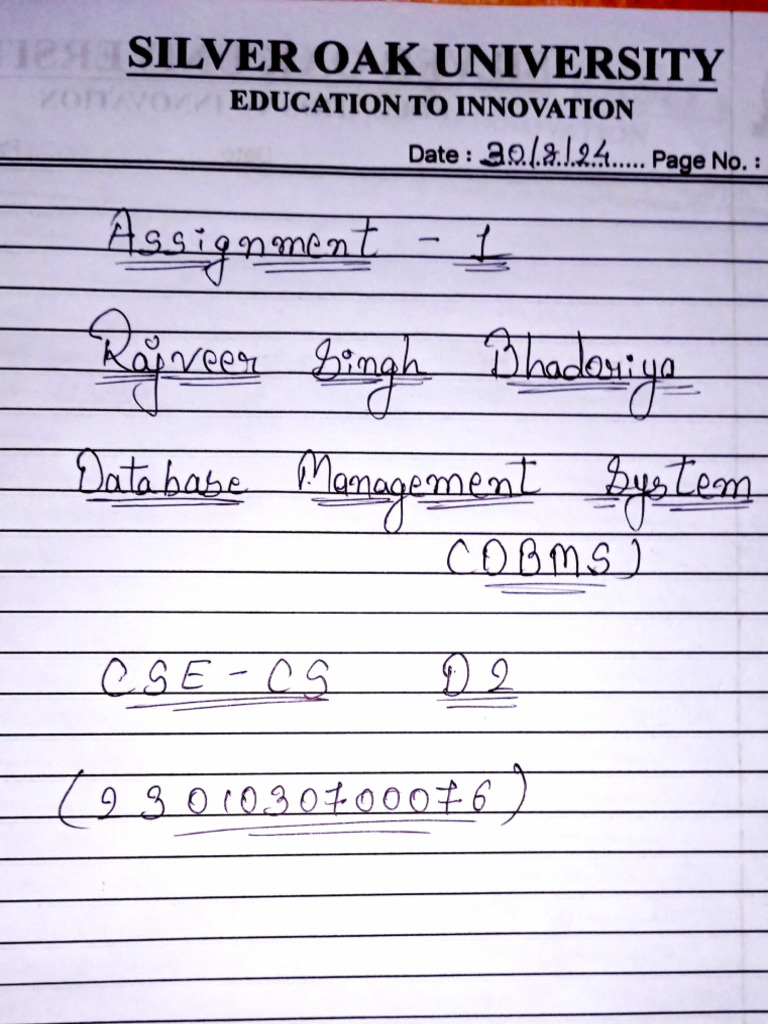 SILVER OAK UNIVERSITY
EDUCATION TO INNOVATION
Date : 30/8/24..... Page No. :
Assignment - 1
Rajveer Singh Bhadoriya
Database Management System
(DBMS)
CSE - CS D2
(2301030700076)